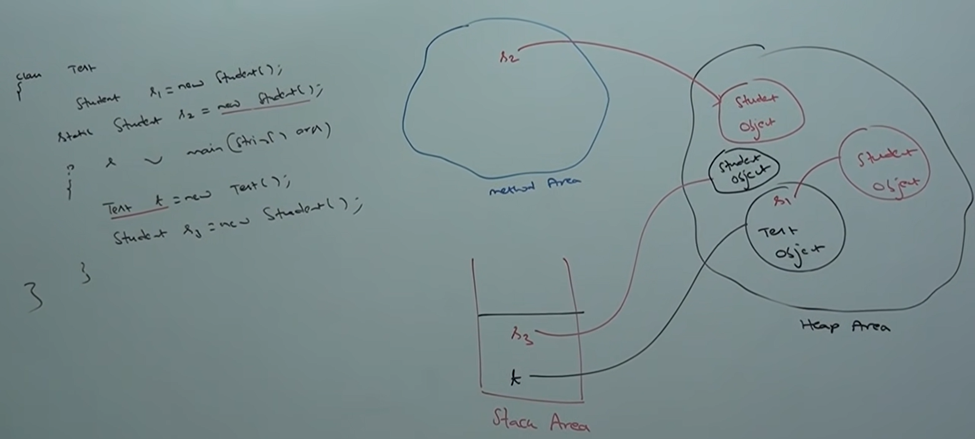 class Test
{
Student s1 = new Student();
static Student s2 = new Student();
p s v main(String[] args)
{
Test t = new Test();
Student s3 = new Student();
}
}
s2
method Area
Student
Object
Student
Object
Student
Object
s1
Test
Object
Heap Area
s3
t
Stack Area